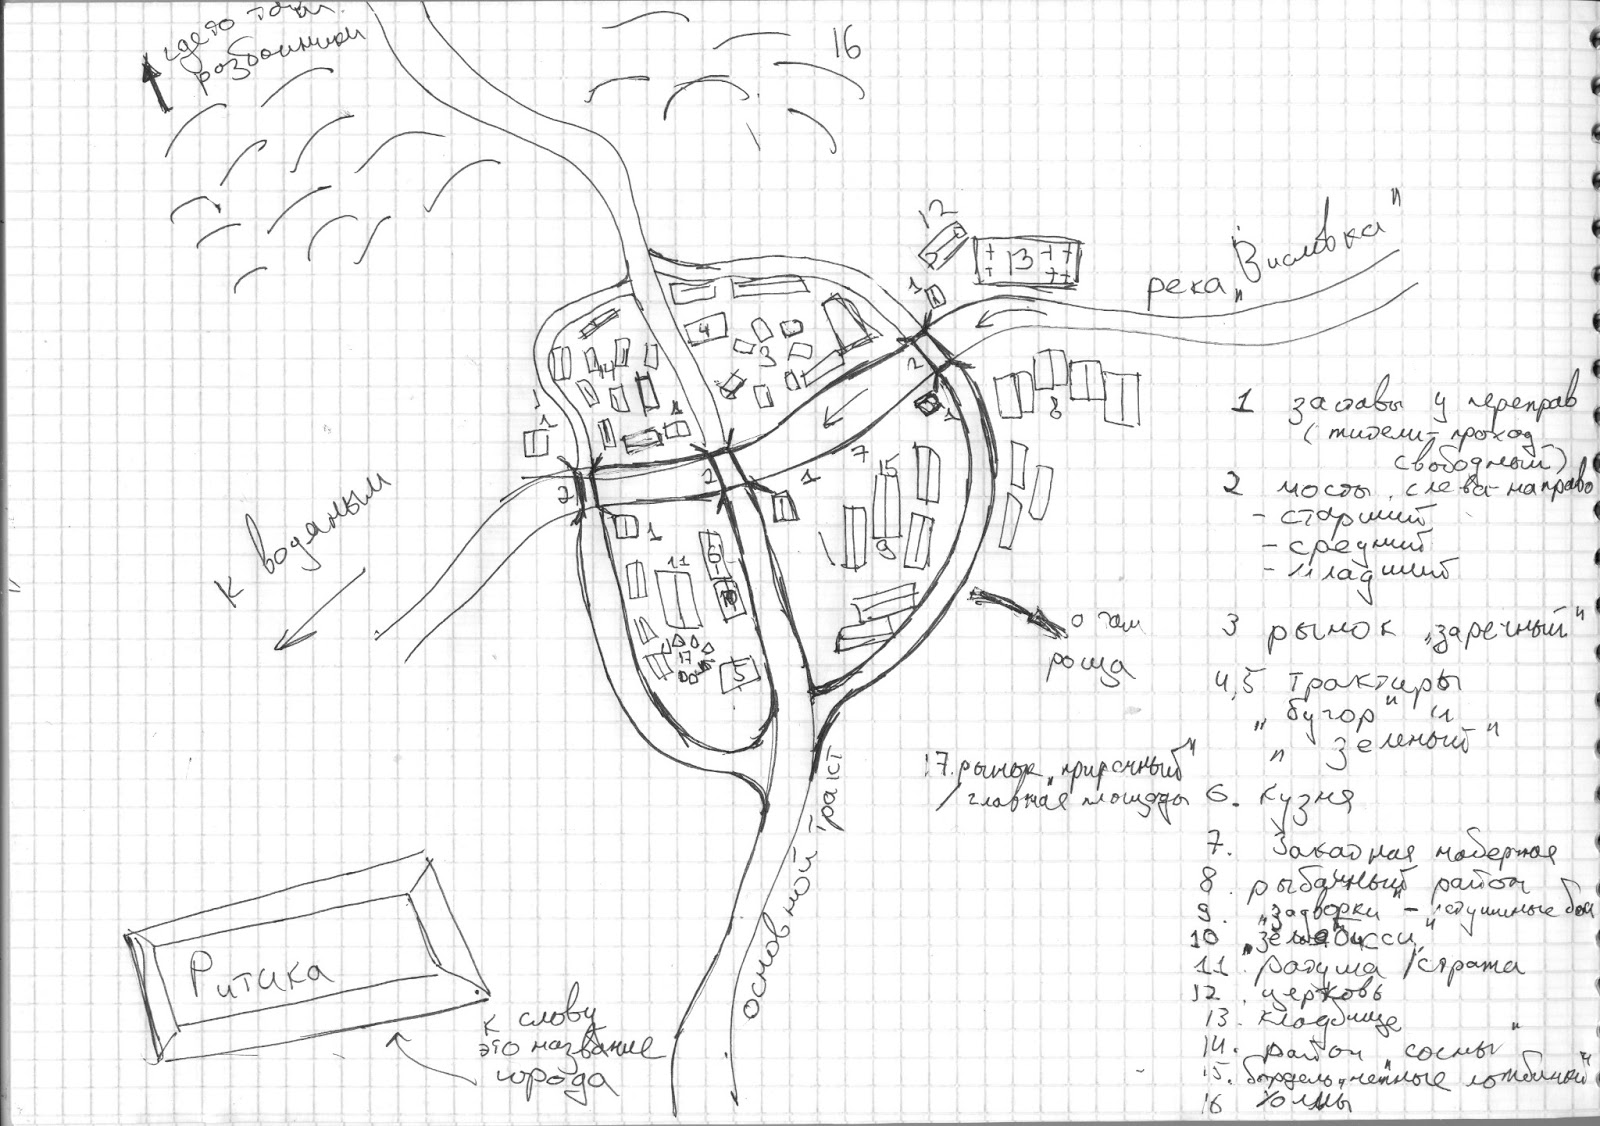 где-то там
разбойники
16
12
13
река „Висловка"
1
4
3
2
14
1
8
1
1
2
2
1
7
15
К водяным
1
11
6
9
10
17
5
о там
роща
1 заставы у переправ
(жители - проход
свободный)
2 мосты. слева-направо
- старший
- средний
- младший
3 рынок „заречный"
4,5 трактиры
„бугор" и
„зеленый"
17. рынок „приречный"
/главная площадь
6. кузня
7. Закатная набережная
8. рыбачный район
9. „задворки" -
10
11 ратуша /стража
12. церковь
13. кладбище
14. район „сосны"
15. бордель
16 холмы
основной тракт
Ритика
к слову
это название
города